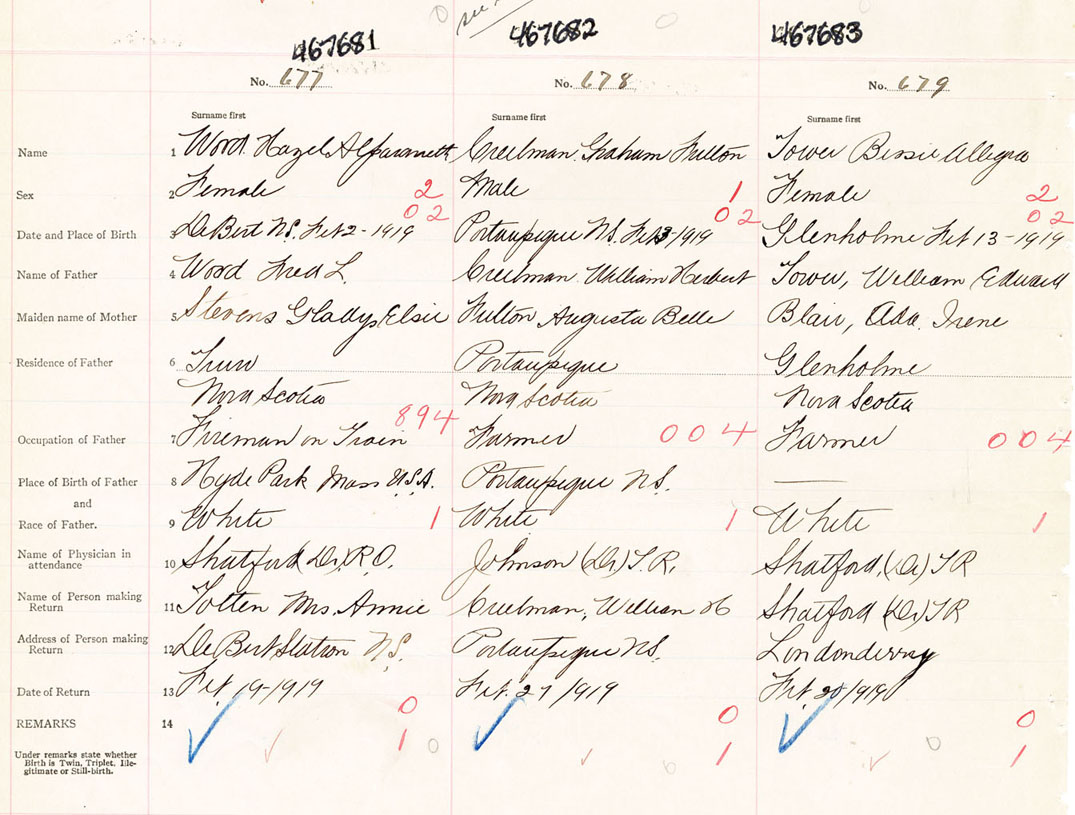 see
467681 467682 467683
No. 677 No. 678 No. 679
Surname first Surname first Surname first
Name 1 Word Hazel Creelman Graham Fulton Tower Bessie Allegra
Sex 2 Female 2 Male 1 Female 2
02 02 02
Date and Place of Birth 3 DeBert N.S. Feb 2-1919 Portaupique N.S. Feb 3-1919 Glenholme Feb 13-1919
Name of Father 4 Word Fred L. Creelman William Herbert Tower, William Edward
Maiden name of Mother 5 Stevens Gladys Elsie Fulton Augusta Belle Blair, Ada Irene
Residence of Father 6 Truro Portaupique Glenholme
Nova Scotia Nova Scotia Nova Scotia
894 004 004
Occupation of Father 7 Fireman on Train Farmer Farmer
Place of Birth of Father 8 Hyde Park Mass U.S.A. Portaupique N.S. ——
and
Race of Father. 9 White 1 White 1 White 1
Name of Physician in
attendance 10 Shatford (Dr.) R.O. Johnson (Dr) T.R. Shatford, (Dr) T R
Name of Person making
Return 11 Totten Mrs. Annie Creelman, William H Shatford (Dr) T R
Address of Person making
Return 12 DeBert Station N.S. Portaupique N.S. Londonderry
Date of Return 13 Feb 19-1919 Feb. 27/1919 Feb. 20/1919
0 0 0
REMARKS 14
1 0 0 1 0 1
Under remarks state whether
Birth is Twin, Triplet, Ille-
gitimate or Still-birth.